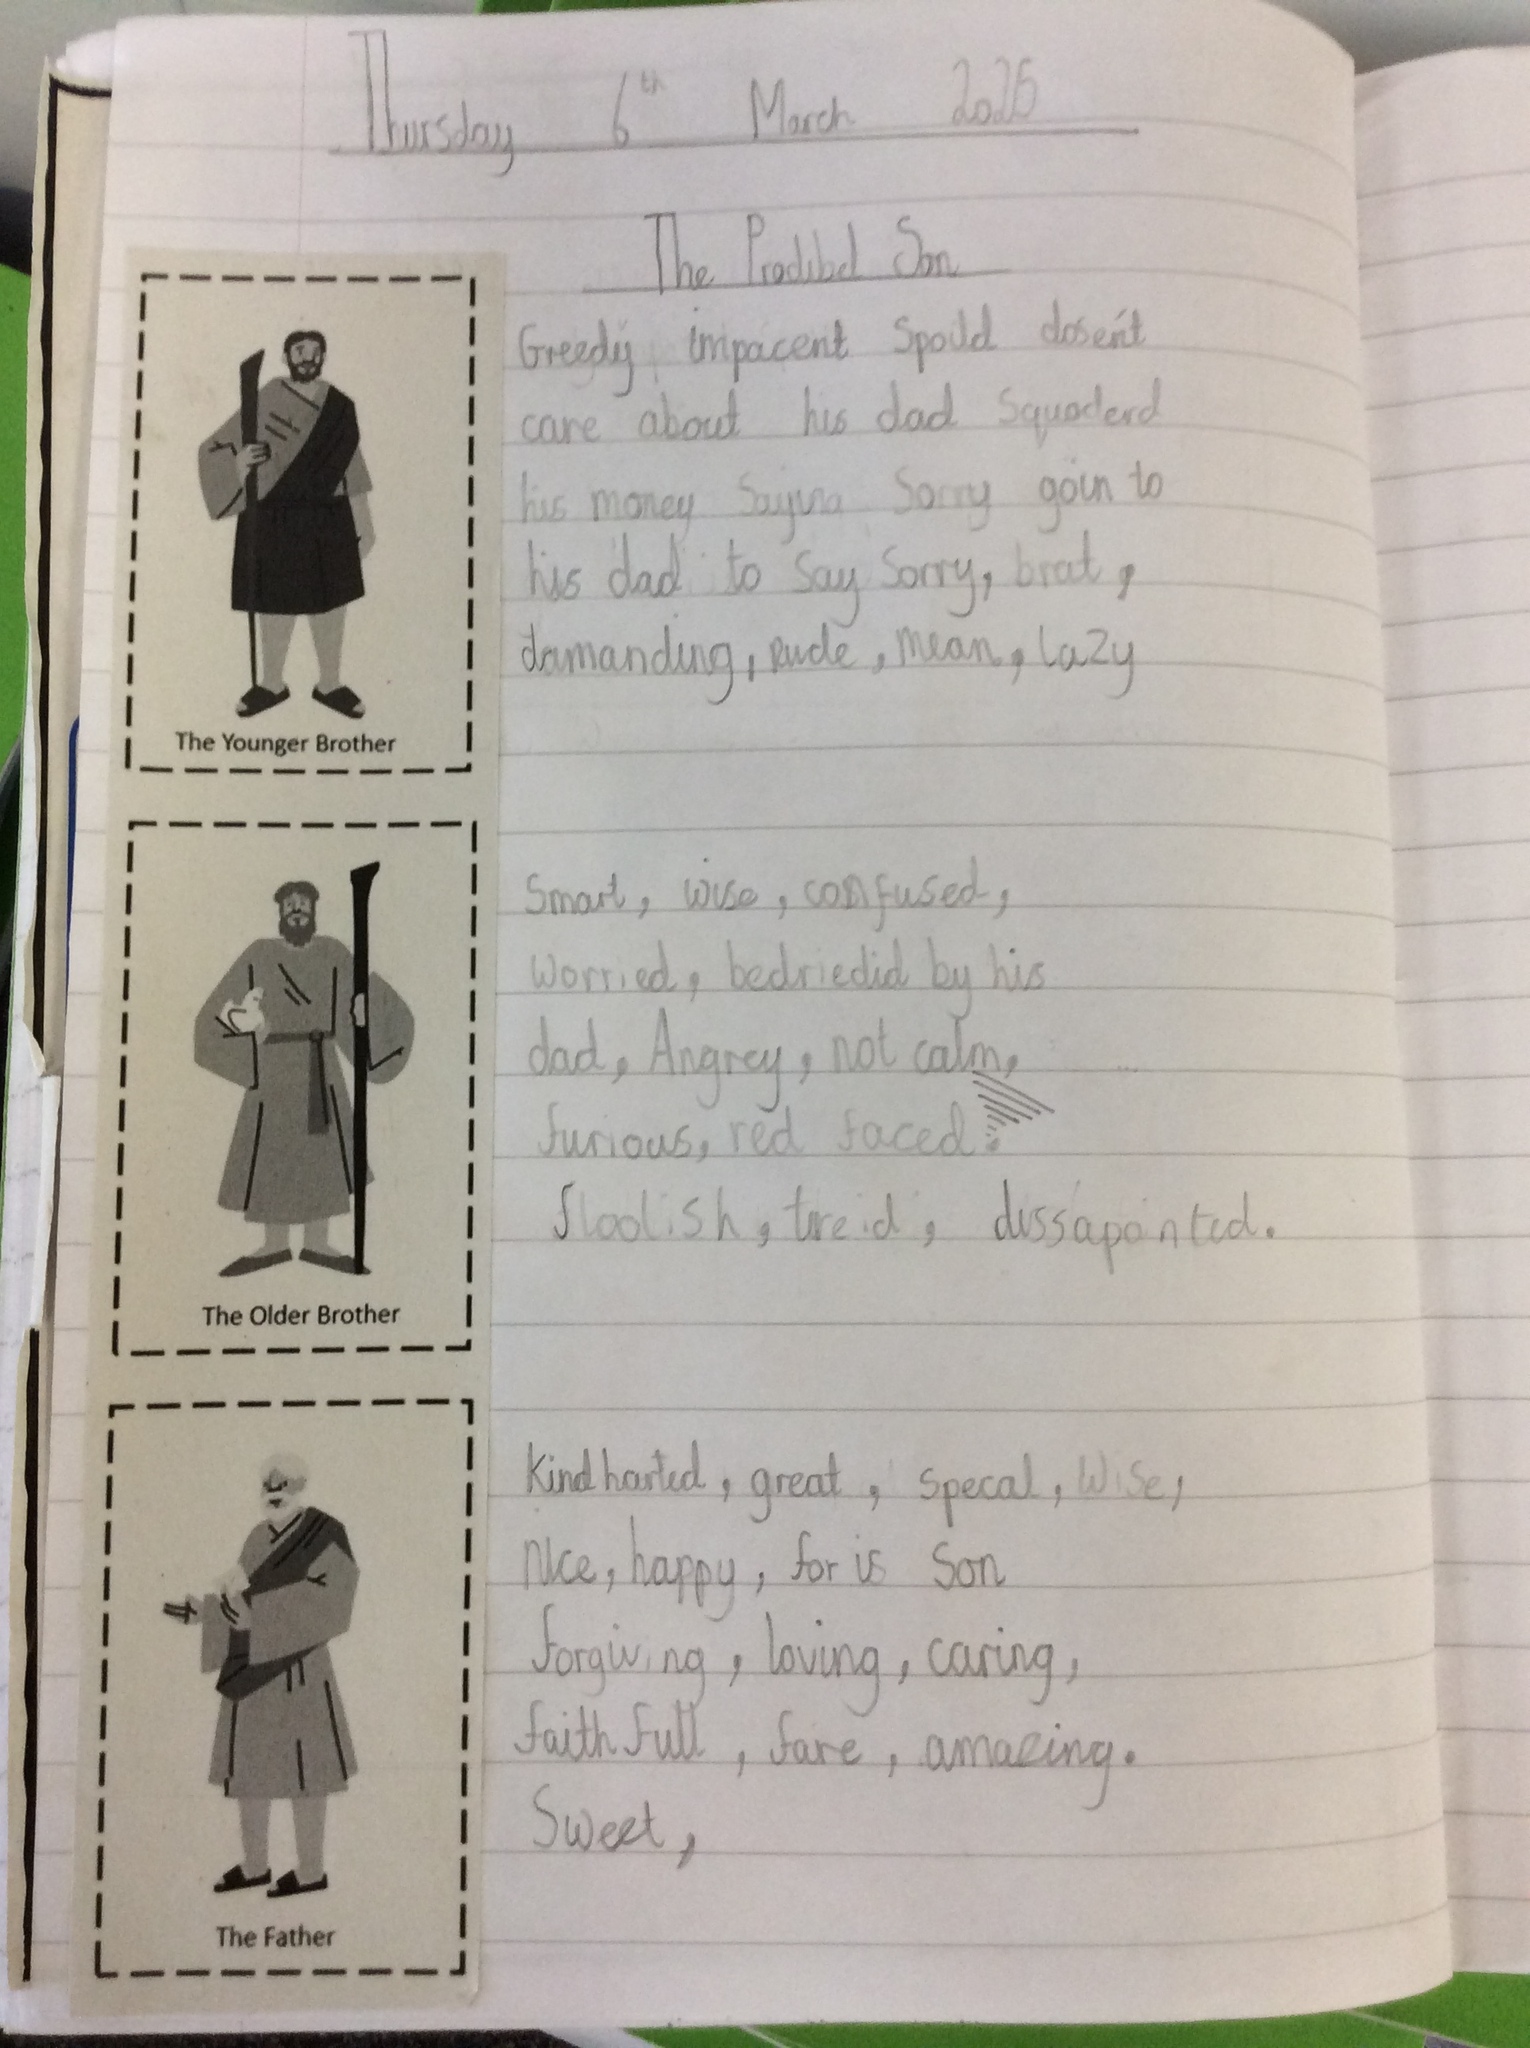 Thursday 6th March 2025
The Prodibel Son
Greedy impacent Spoild dosen't
care about his dad Squaderd
his money Sayina Sorry goin to
his dad to Say Sorry, brat,
damanding, rude, mean, Lazy
The Younger Brother
Smart, wise, confused,
Worried, bedriedid by his
dad, Angrey, not calm,
furious, red faced.
floolish, tireid, dissapointed.
The Older Brother
Kind harted, great, specal, Wise,
nice, happy, for is Son
forgiving, loving, caring,
faith full, fare, amazing.
Sweet,
The Father